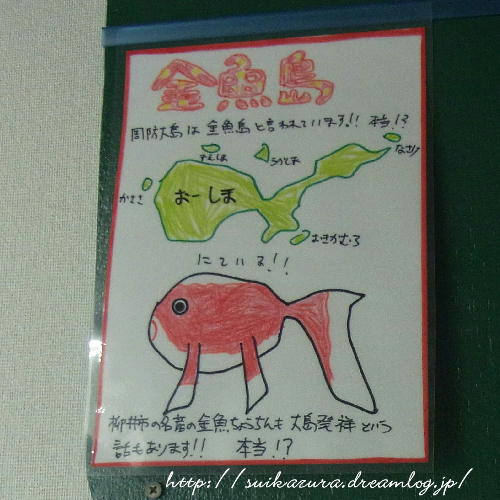 金魚島
周防大島は金魚島と言われています!! 本当!?
おーしま
かささ
うかしま
なさけ
おきかむろ
にている!!
柳井市の名産の金魚ちょうちんも大島発祥という
話もあります!! 本当!?
http://suikazura.dreamlog.jp/